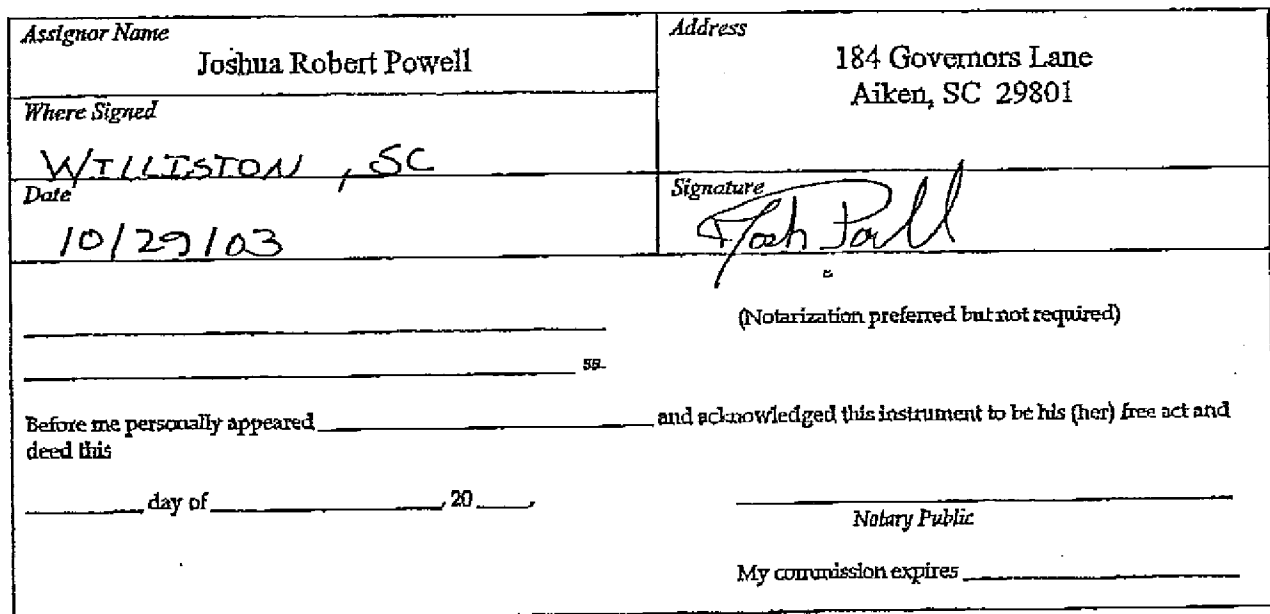 Assignor Name
Joshua Robert Powell
Address
184 Governors Lane
Aiken, SC 29801
Where Signed
WILLISTON, SC
Date
10/29/03
Signature
Josh Powell
(Notarization preferred but not required)
ss.
Before me personally appeared and acknowledged this instrument to be his (her) free act and
deed this
day of , 20 ,
Notary Public
My commission expires